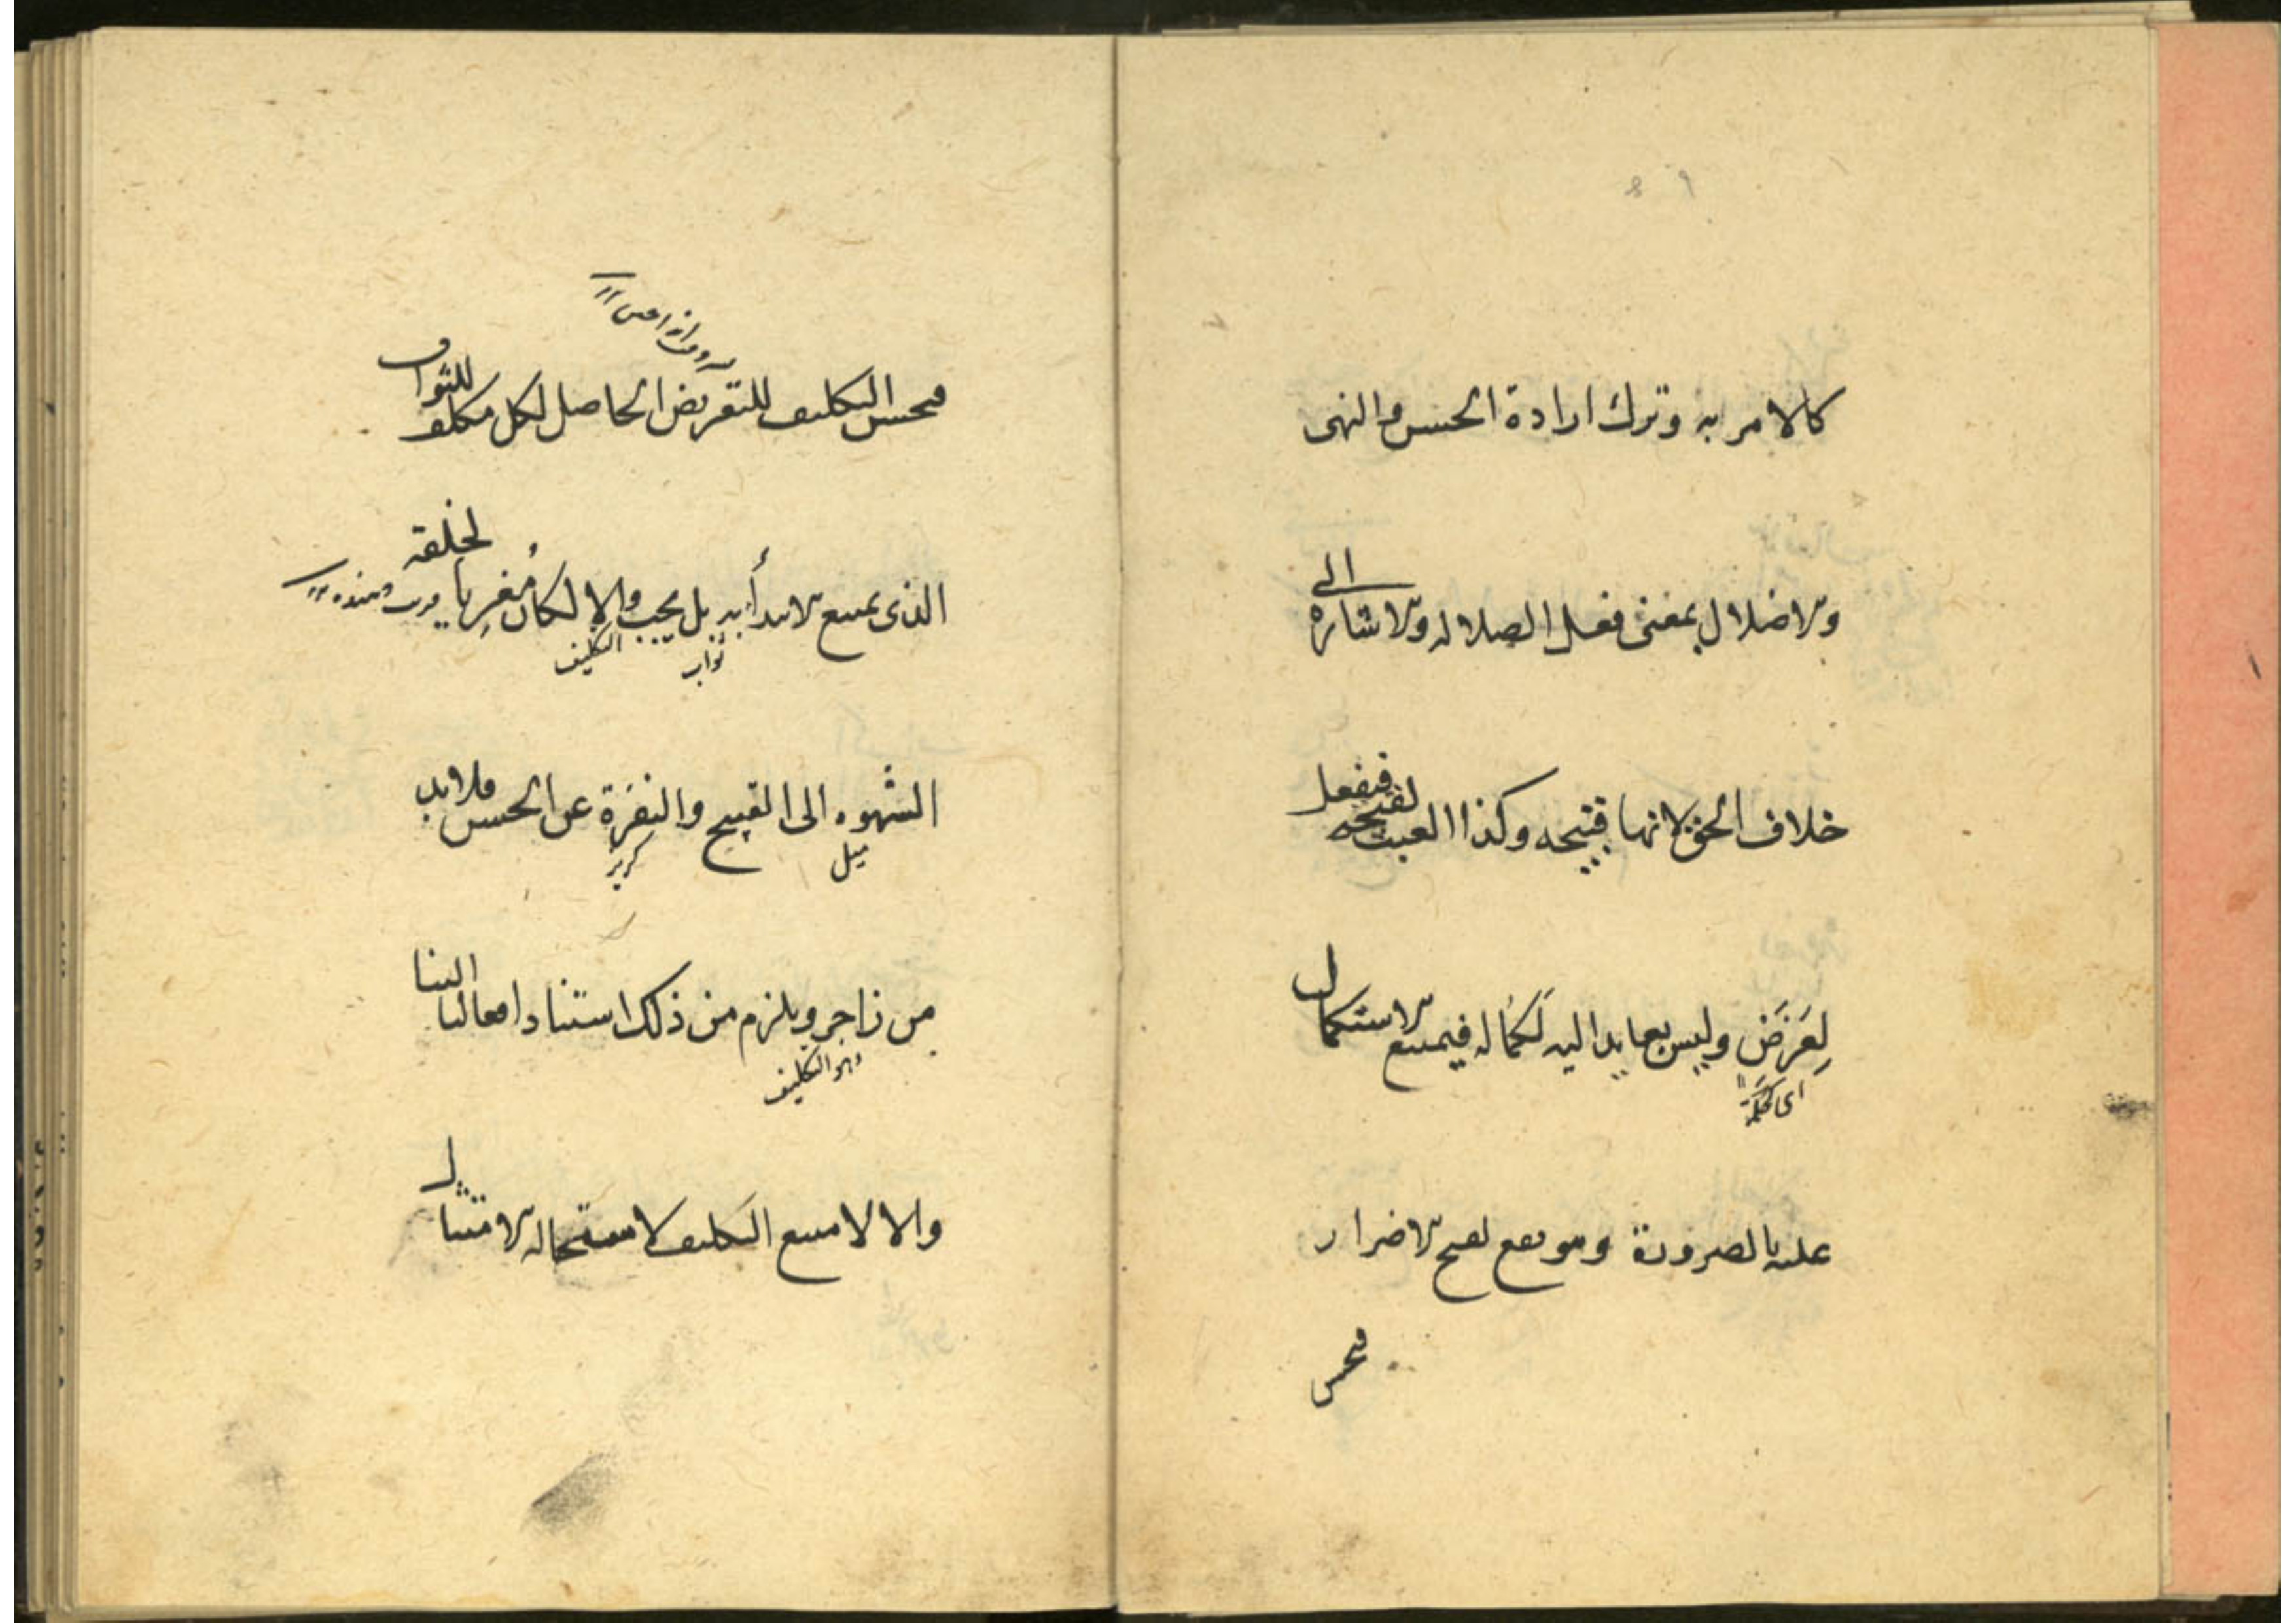 ٩ ٨
كالامر به وترك ارادة الحسن والنهى
والاضلال بمعنى فعل الضلاله والاشاره الى
خلاف الحق لانها قبيحه وكذا العبث لقبحه فيفعل
لِغَرَضَ وليس بعايدا اليه لَكَمَاله فيمتنع الاستكمال
اى لحكمة
عليه بالضرورة وهو نفع لقبح الاضرار
فحسن
فحسن التكليف للتعريض الحاصل لكل مكلف للثواب
الذى يمتنع الابتدأ به بل يجب والا لكان مُغرِيا لخلقه
ثواب
التكليف
الشهوه الى القبيح والنفرَة عن الحسن فلا بد
ميل
من زاجر ويلزم من ذلك استناد افعالنا الينا
وهو التكليف
والا لامتنع التكليف لاستحاله الامتثال